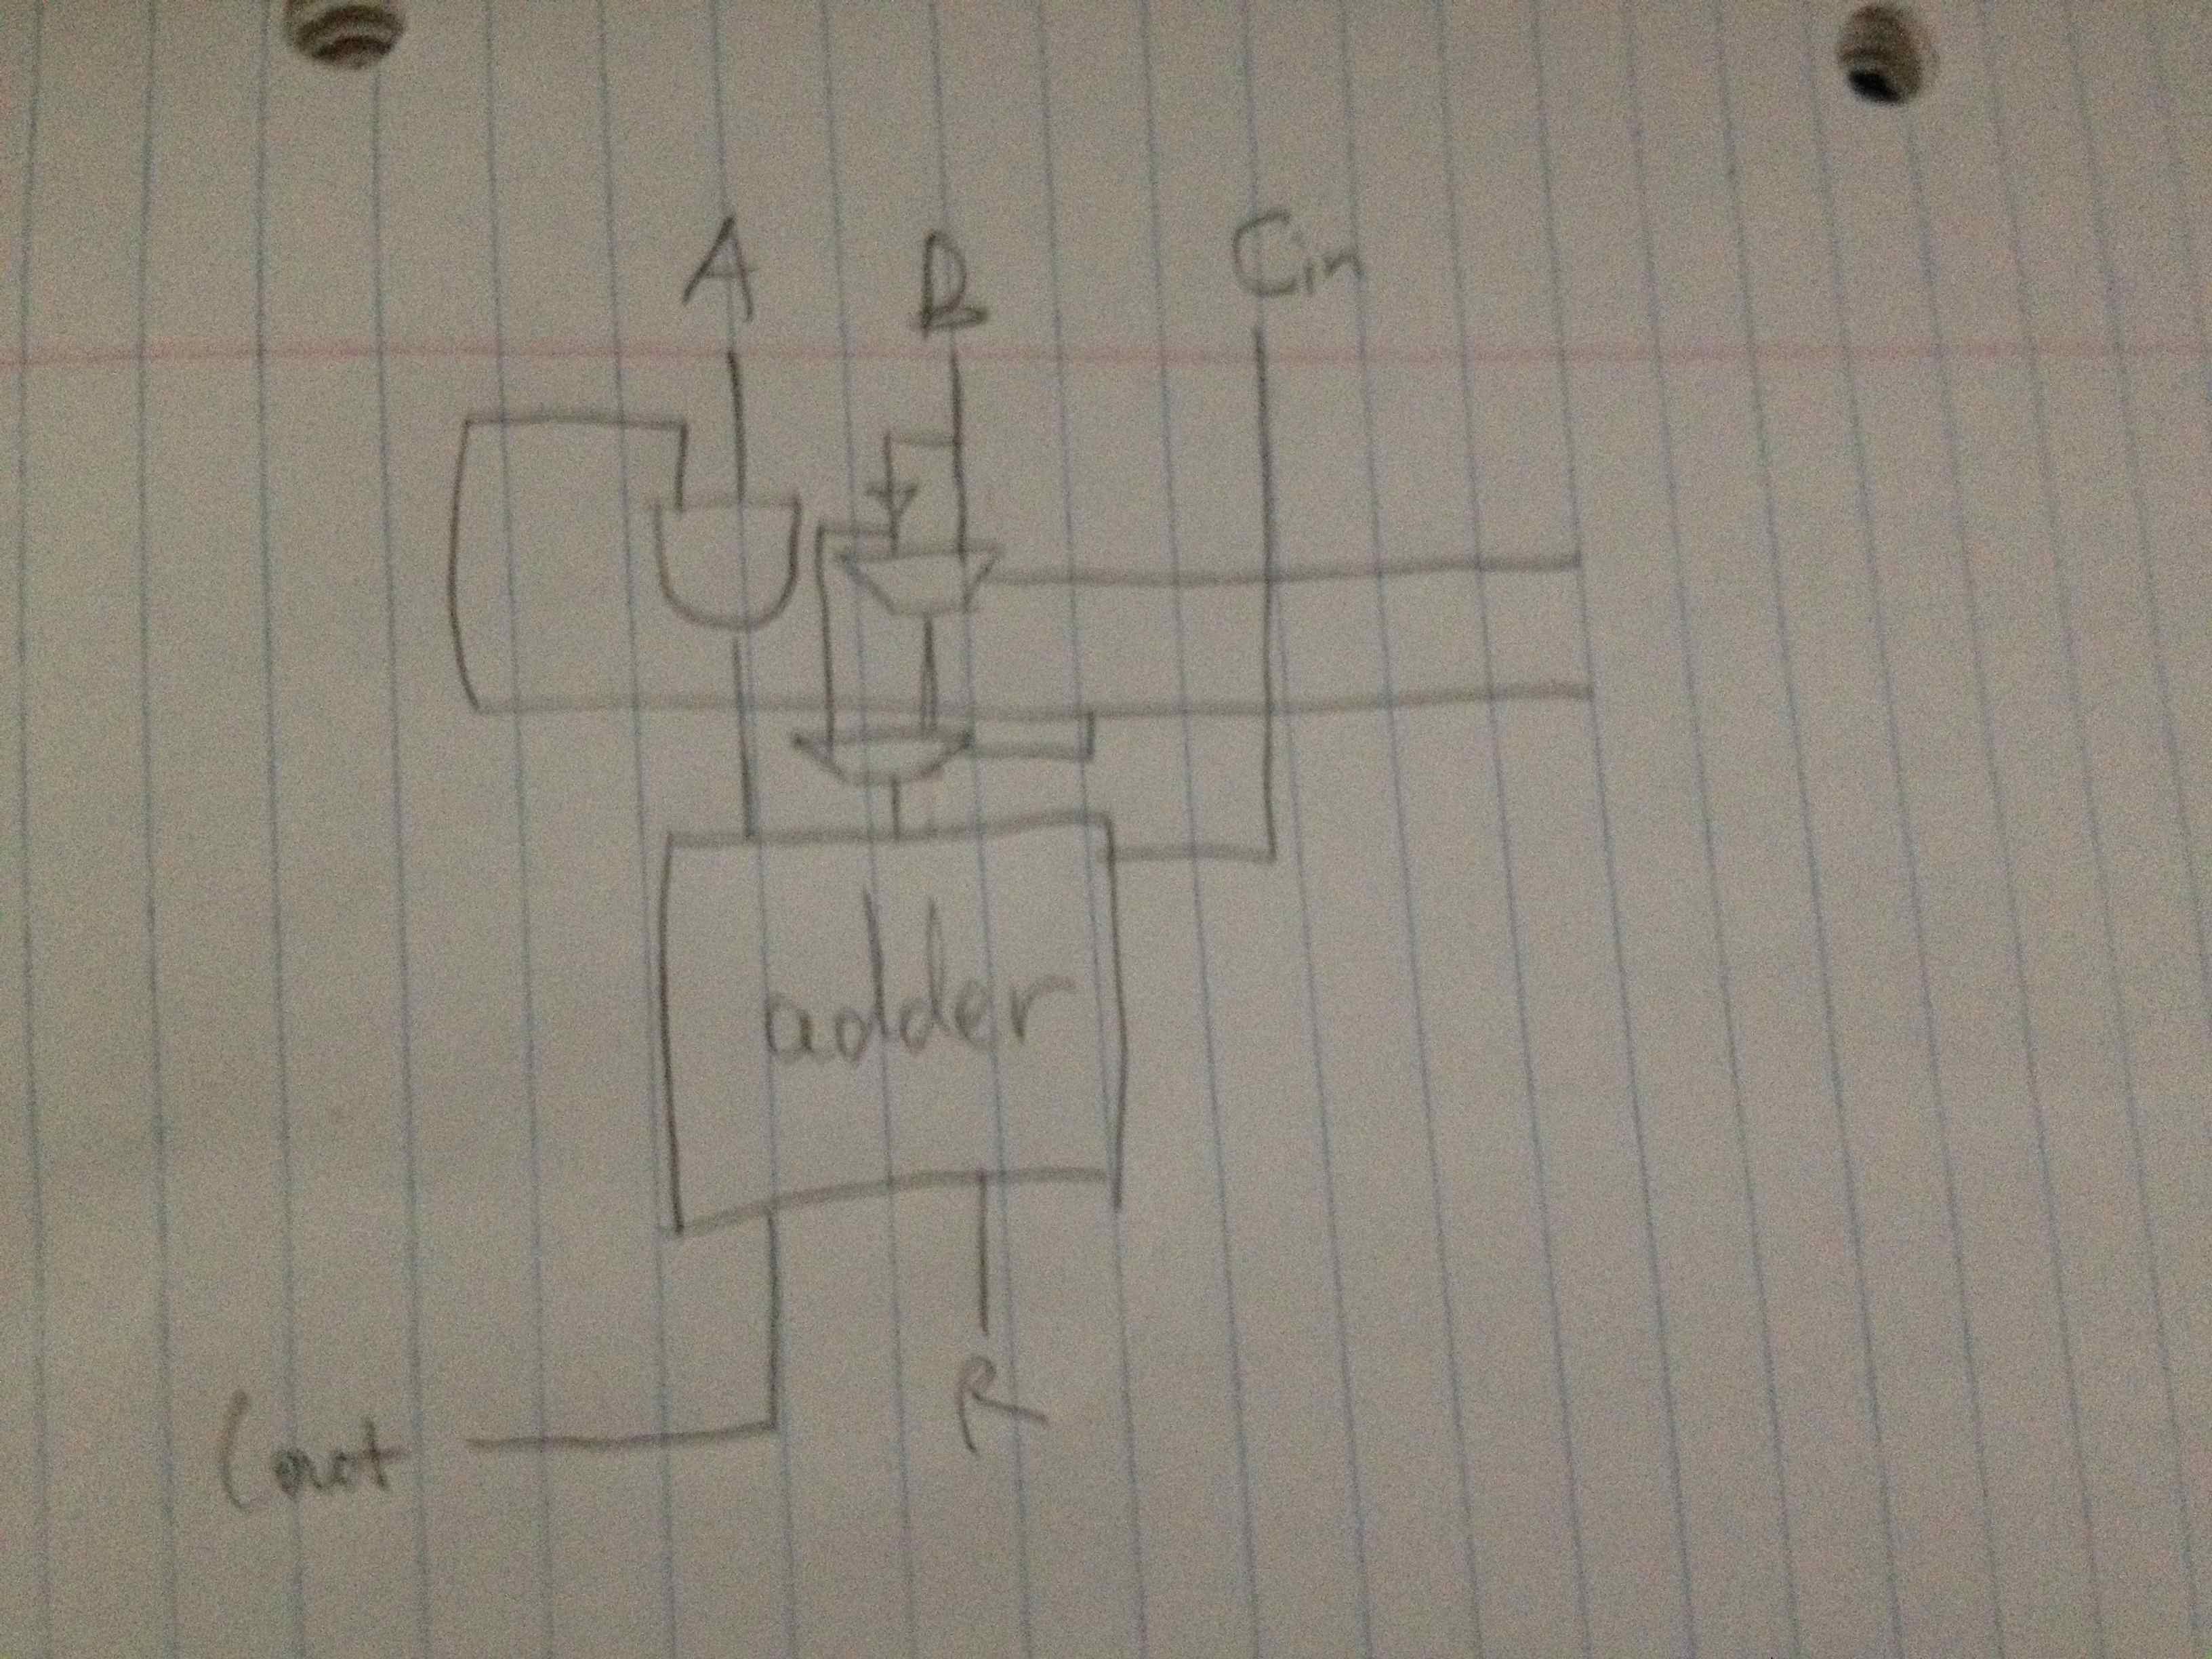 A B Cin
adder
Cout R